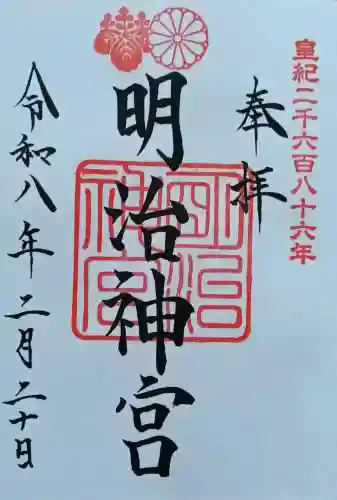 皇紀二千六百八十六年
奉拝
明治神宮
明治神宮
令和八年二月二十日